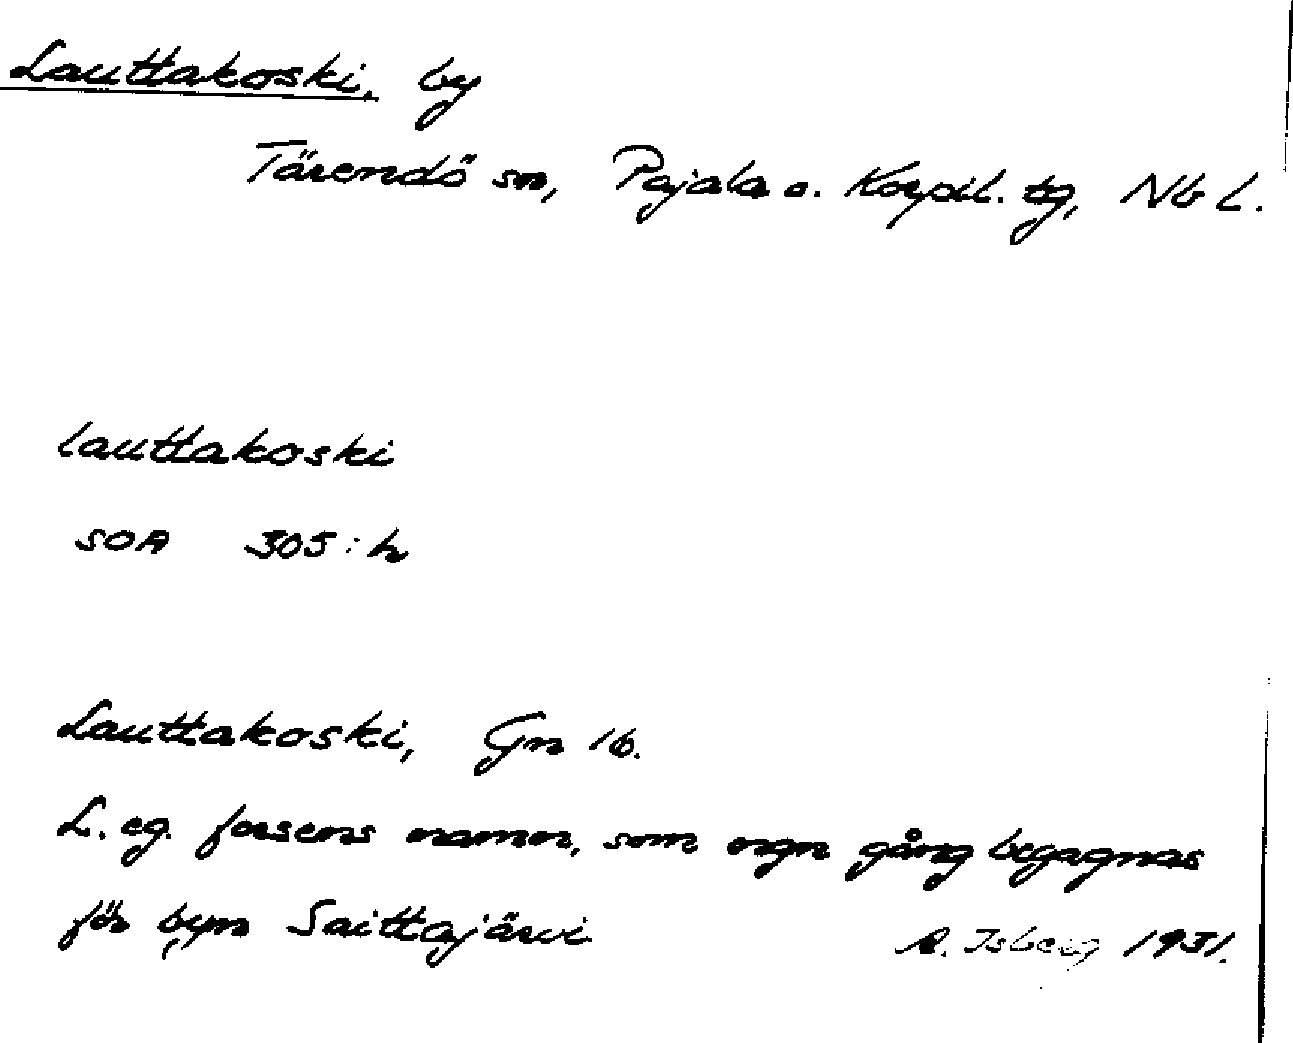 Lauttakoski, by
Tärendö sn, Pajala o. Korpil. tg, Nb L.
lauttakoski
SOA 305:h
Lauttakoski, Gn 16.
L. eg. forsens namn, som ngn gång begagnas
för byn Saittajärvi R. Isberg 1931.